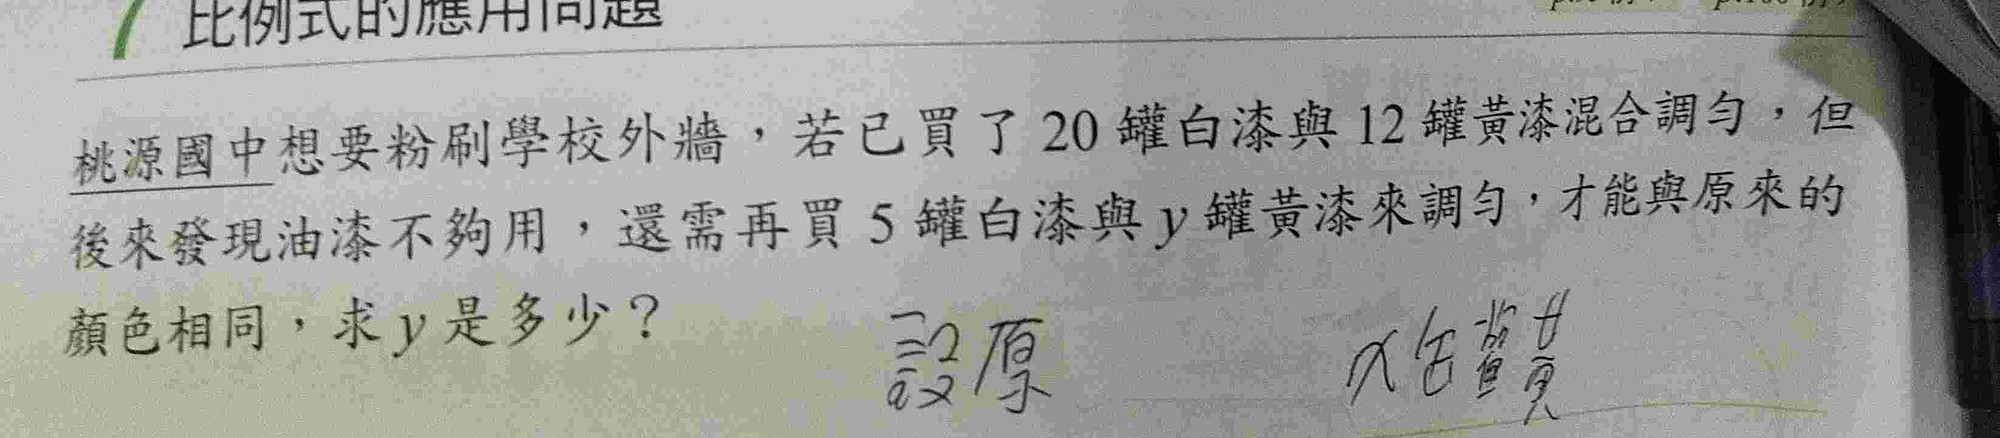 7 比例式的應用問題
桃源國中想要粉刷學校外牆，若已買了 20 罐白漆與 12 罐黃漆混合調勻，但
後來發現油漆不夠用，還需再買 5 罐白漆與 y 罐黃漆來調勻，才能與原來的
顏色相同，求 y 是多少？
設原